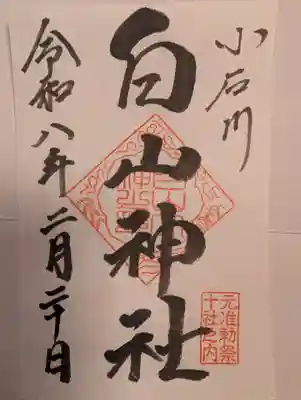 小石川
白山神社
令和八年二月二十日
元准勅祭
十社之内